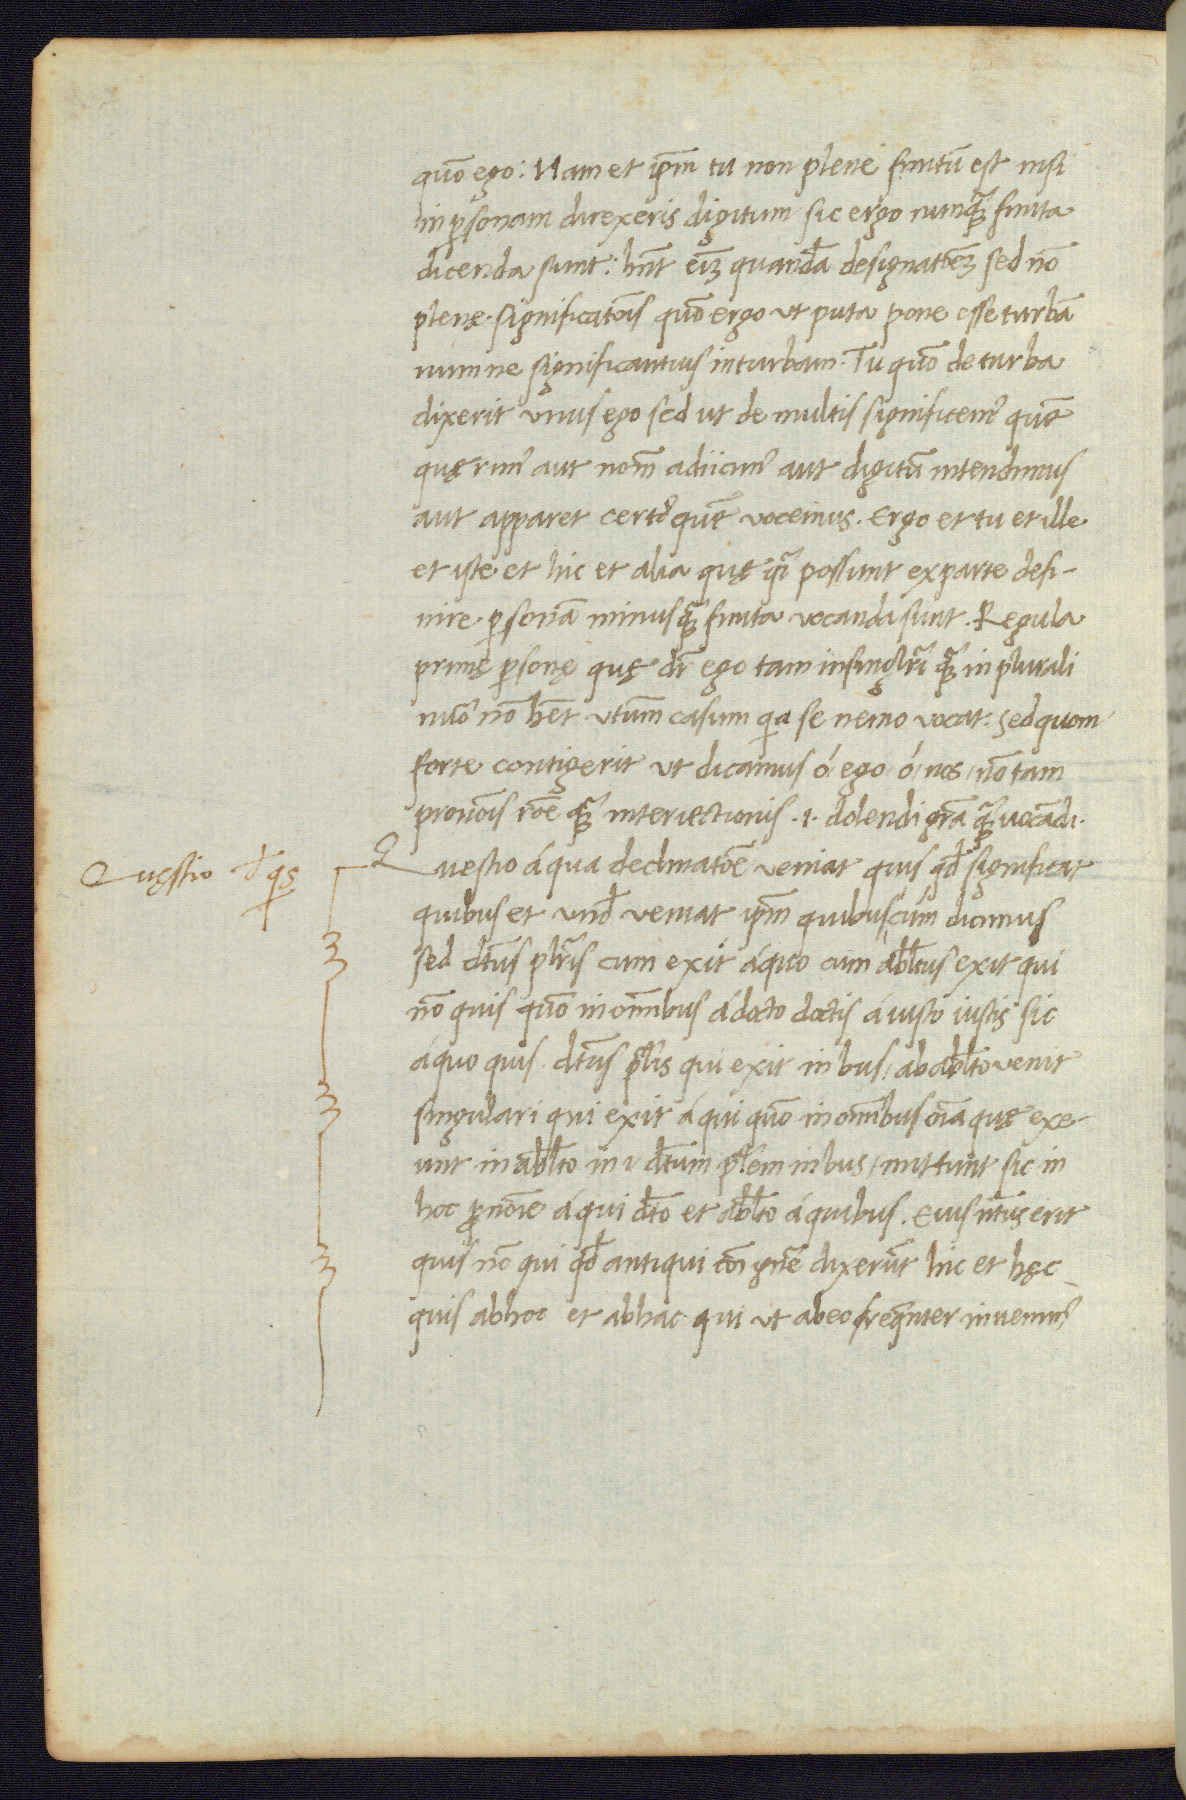 quõ ego: Nam et ip̃m tu non plene finitũ est nisi
in p̱sonam direxeris digitum sic ergo nunq̃ finita
dicenda sunt: hñt eĩ quandã designatõẽ sed nõ
plenę significatõis quõ ergo ut puta pone esse turbã
numne significantius in turbam. Tu quõ de turba
dixerit unus ego sed ut de multis significem⁹ quẽ
quęrim⁹ aut nom̃ adiicim⁹ aut digitũ intendimus
aut apparet certũ quẽ vocemus. Ergo et tu et ille
et iste et hic et alia quę q̃i possunt ex parte defi-
nire p̱sonã minusq̃ finita vocanda sunt. Regula
primę p̱sonę quę dr̃ ego tam in singl̃ri q̃ in plurali
nũo nõ hẽt vtum̃ casum q̱a se nemo vocat: sed quom
forte contigerit ut dicamus ó ego ó nos nõ tam
pronõis rõe q̃ interiectionis .i. dolendi gr̃a q̃ uocãdi.
Quęstio d̃ q̱s
Questio á qua declinatõe veniat quis qđ significat
quibus et unđ veniat ip̃m quibuscum dicimus
sed dt̃us plr̃is cum exit á quo cum abl̃tus exit qui
nõ quis quõ in omñibus á docto doctis á iusto iustis sic
á quo quis dt̃us pl̃is qui exit in bus, ab abl̃to venit
singulari qui exit á qui quõ in omñibus oĩa quę exe-
unt in abl̃to in i dt̃um pl̃em in bus mittunt sic in
hoc p̱nõie á qui dt̃o et abl̃to á quibus. Eius nt̃us erit
quis nõ qui qđ antiqui cõi gñe dixerũt hic et hęc
quis ab hoc et ab hac qui ut ab eo freq̃nter inuenim⁹